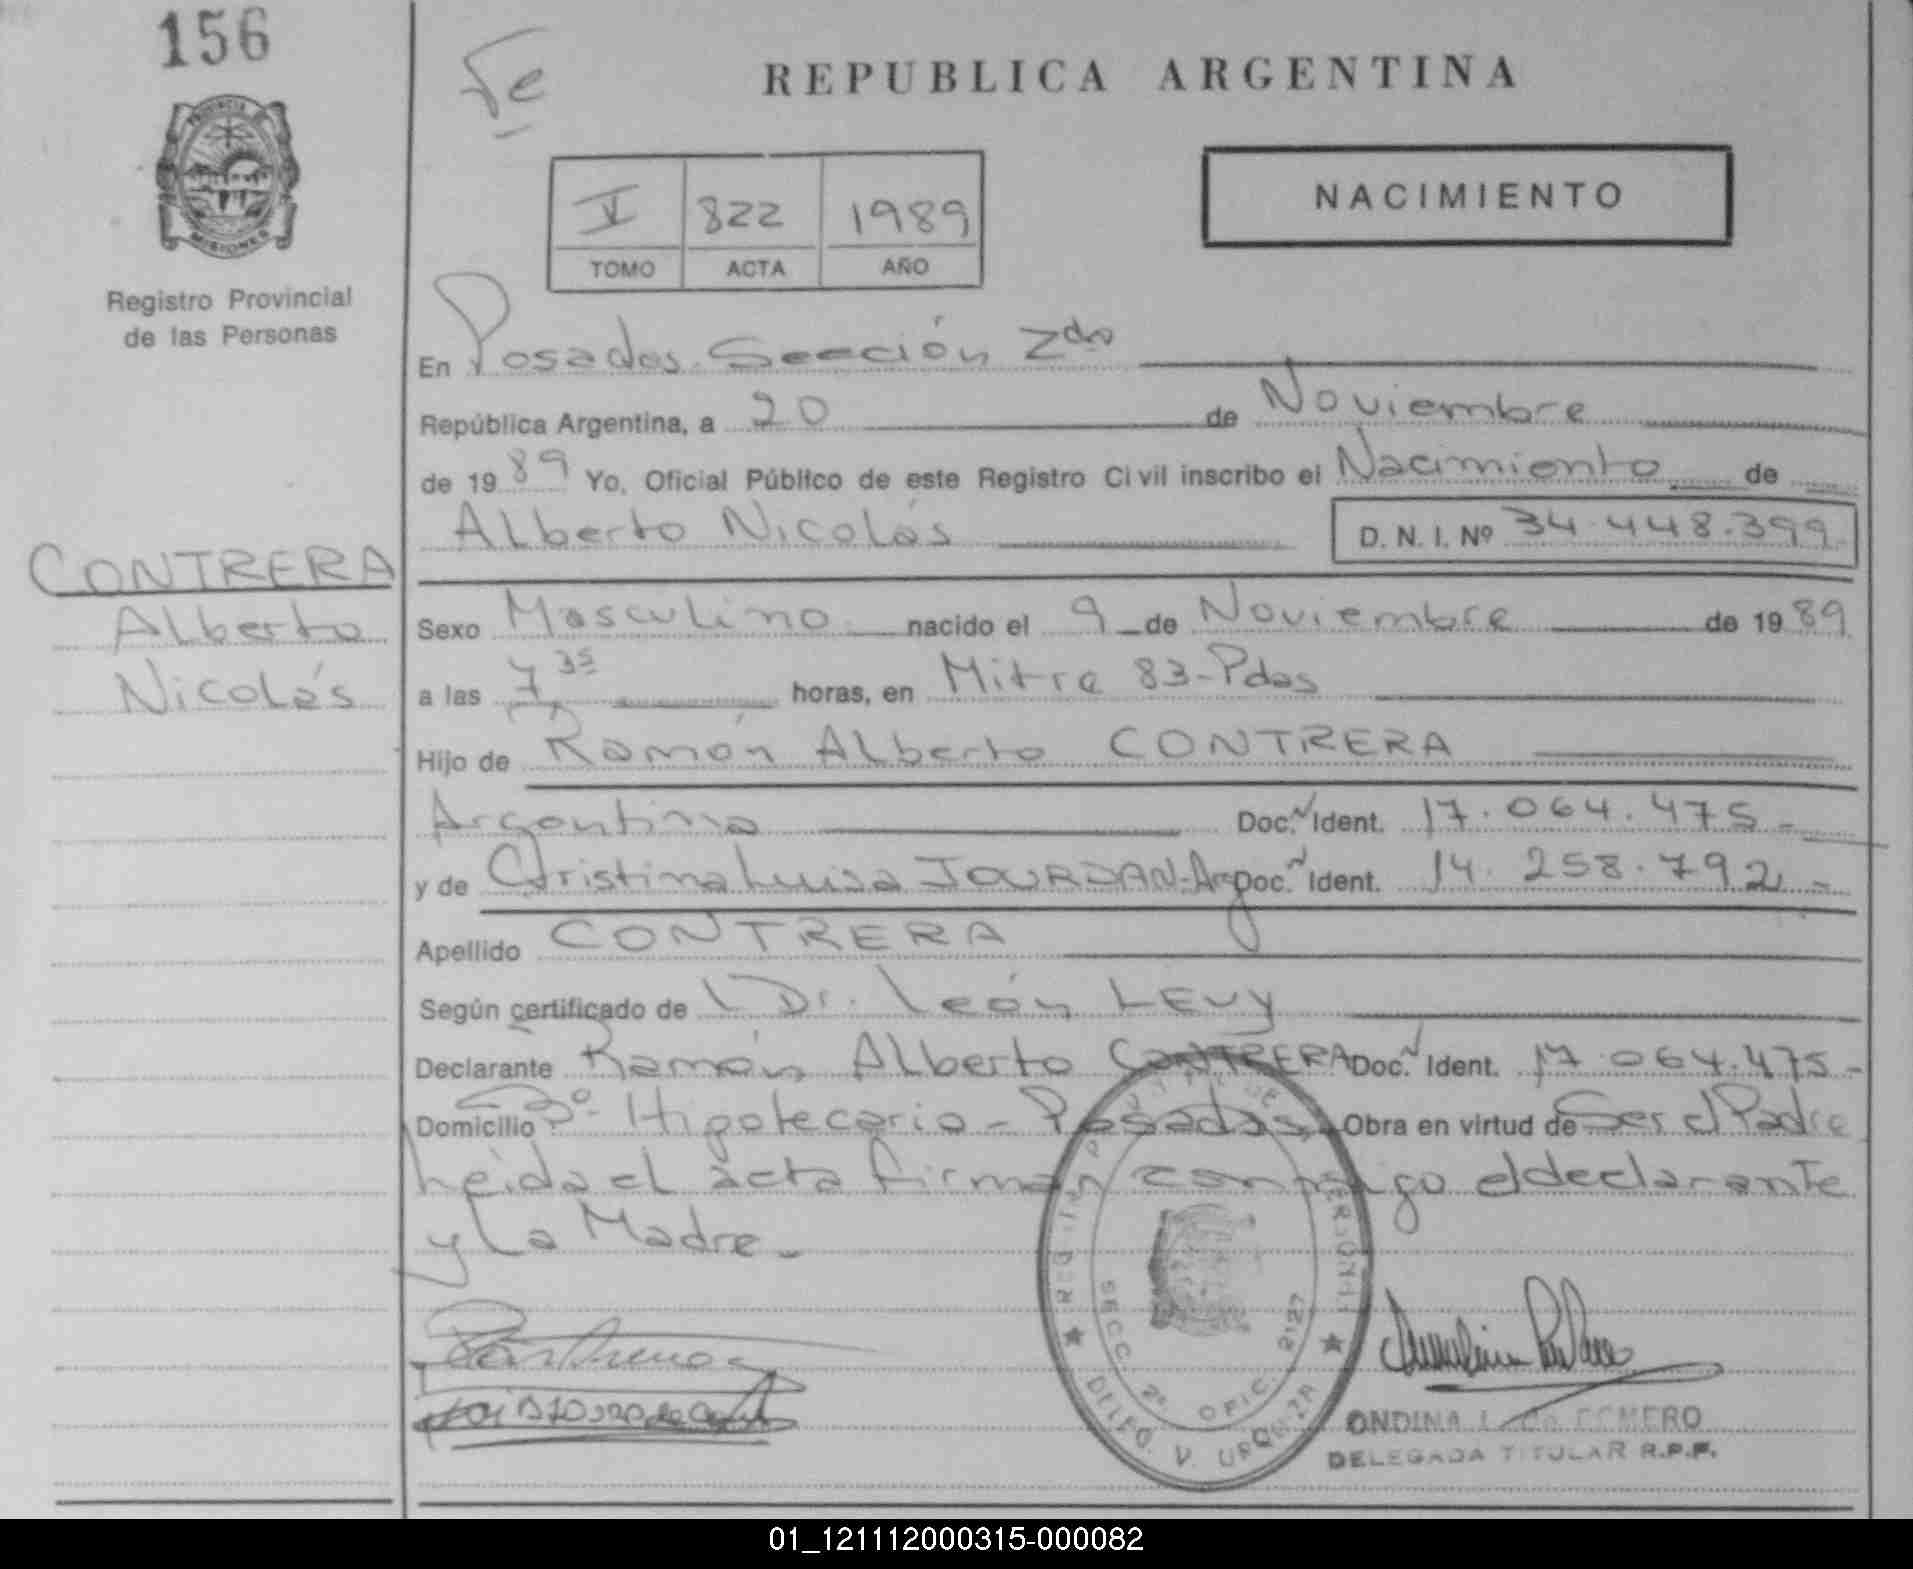 156
Fe
REPUBLICA ARGENTINA
PROVINCIA
MISIONES
NACIMIENTO
V 822 1989
TOMO ACTA AÑO
Registro Provincial
de las Personas
En Posadas Sección 2da
República Argentina, a 20 de Noviembre
de 1989 Yo, Oficial Público de este Registro Civil inscribo el Nacimiento de
Alberto Nicolás D. N. I. Nº 34.448.399
CONTRERA
Alberto
Nicolás
Sexo Masculino nacido el 9 de Noviembre de 1989
a las 7 35 horas, en Mitre 83-Pdas
Hijo de Ramón Alberto CONTRERA
Argentino Doc. Ident. 17.064.475-
y de Cristina Luisa JOURDAN-Arg Doc. Ident. 14.258.792-
Apellido CONTRERA
Según certificado de Dr. León LEVY
Declarante Ramón Alberto CONTRERA Doc. Ident. 17.064.475-
Domicilio Bº Hipotecario - Posadas, Obra en virtud de Ser el Padre
Leida el acta firman conmigo el declarante
y La Madre-
SECC. 2º OFIC. 2127
DELEG. V. URQUIZA
ONDINA
DELEGADA TITULAR R.P.P.
01_121112000315-000082